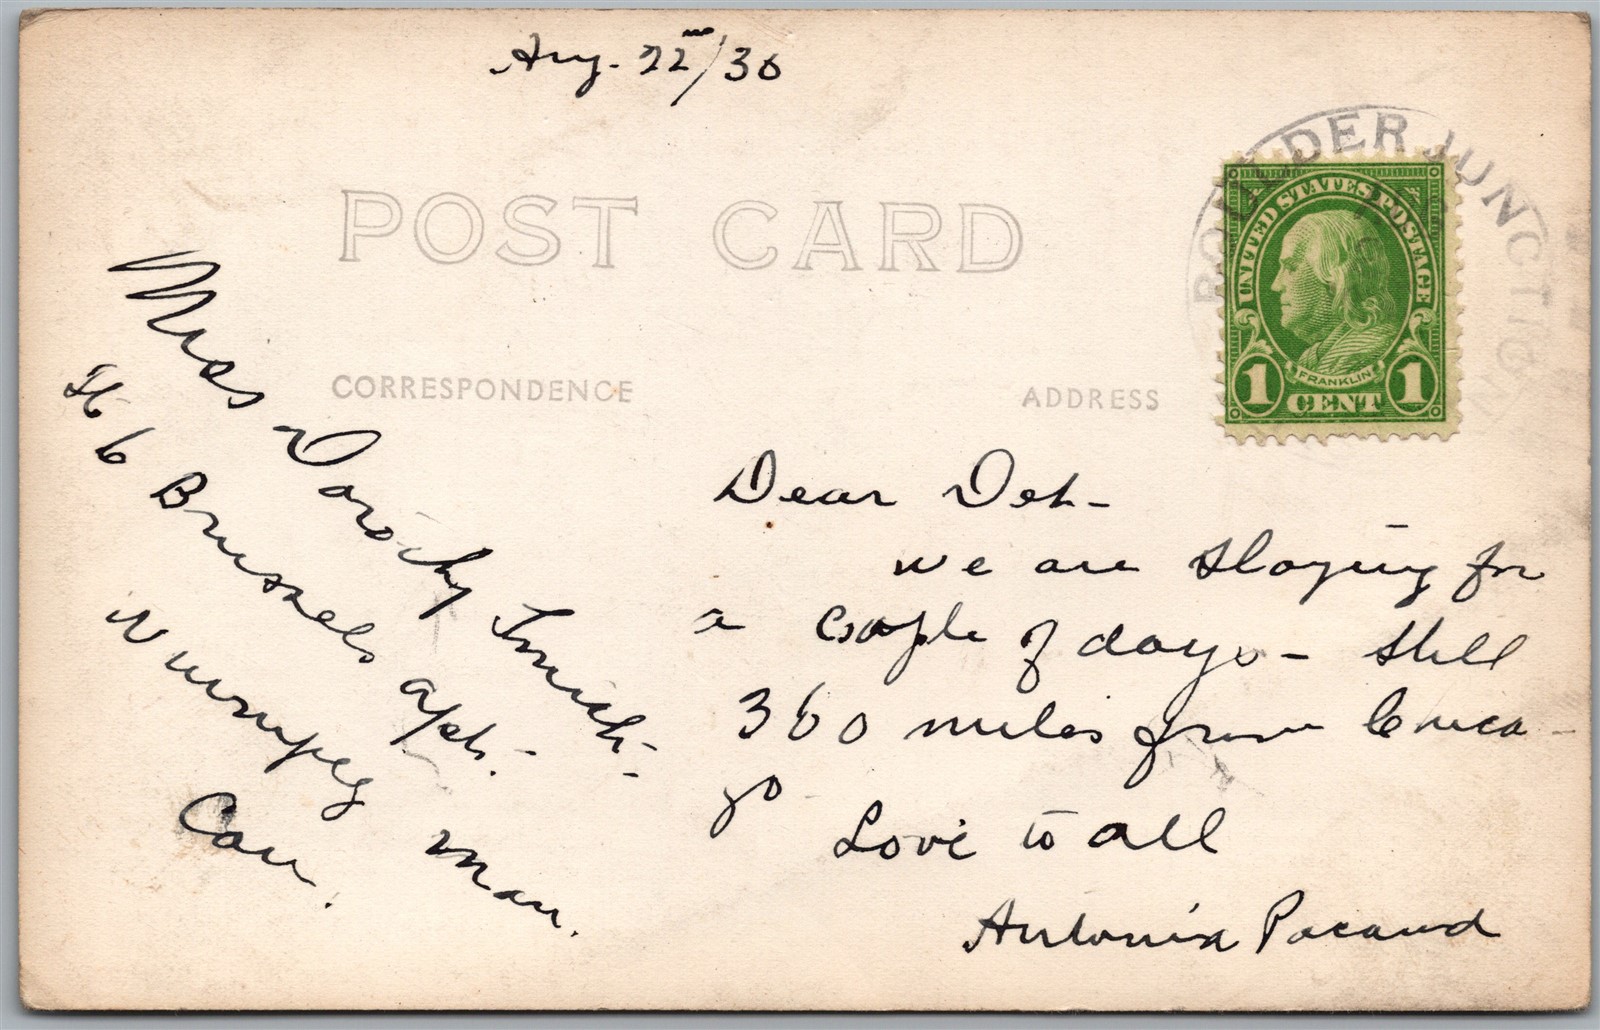 Aug. 22nd/30
BOULDER JUNCTION
UNITED STATES POSTAGE
FRANKLIN
1 CENT 1
POST CARD
CORRESPONDENCE
ADDRESS
Miss Dorothy Smith-
6 Brussels apt.
Winnipeg Man.
Can.
Dear Dot-
we are staying for
a couple of days - still
360 miles from Chica-
go
Love to all
Antonia Pacaud